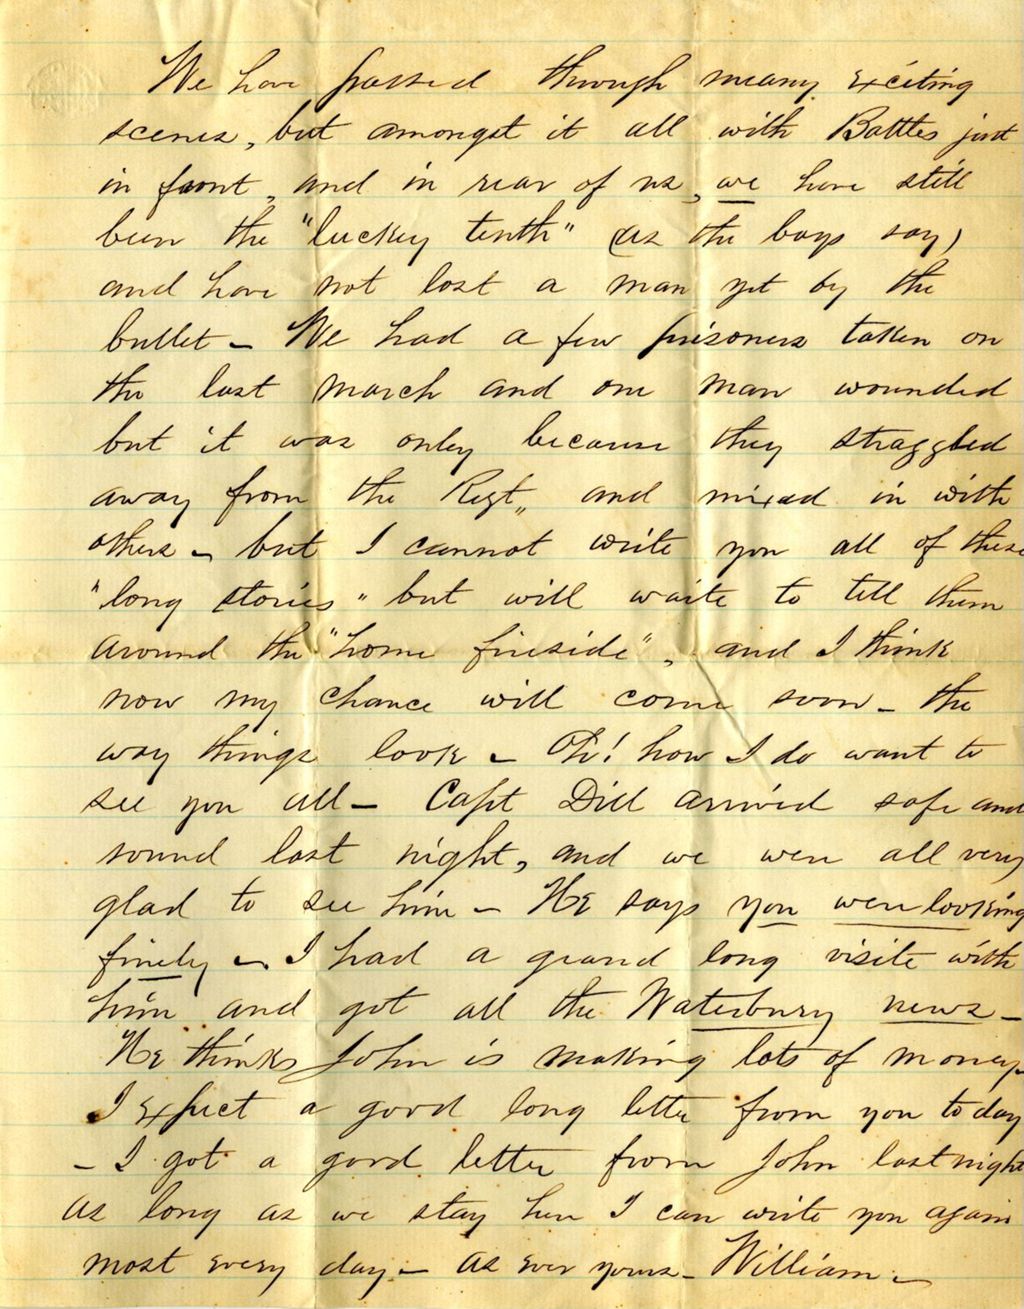 We have passed through meany exciting
scenes, but amongst it all with Battles just
in front, and in rear of us, we have still
been the "luckey tenth" (as the boys say)
and have not lost a man yet by the
bullet - We had a few prisoners taken on
the last march and one man wounded
but it was only because they straggled
away from the Regt,, and mixed in with
others - but I cannot write you all of these
"long stories" but will waite to tell them
around the "home fireside", and I think
now my chance will come soon - the
way things look - Oh! how I do want to
see you all - Capt Dill arrived safe and
sound last night, and we were all very
glad to see him - He says you were looking
finely - I had a grand long visite with
him and got all the Waterbury news -
He thinks John is making lots of money -
I expect a good long letter from you to day
- I got a good letter from John last night
As long as we stay here I can write you again
most every day - As ever yours - William -